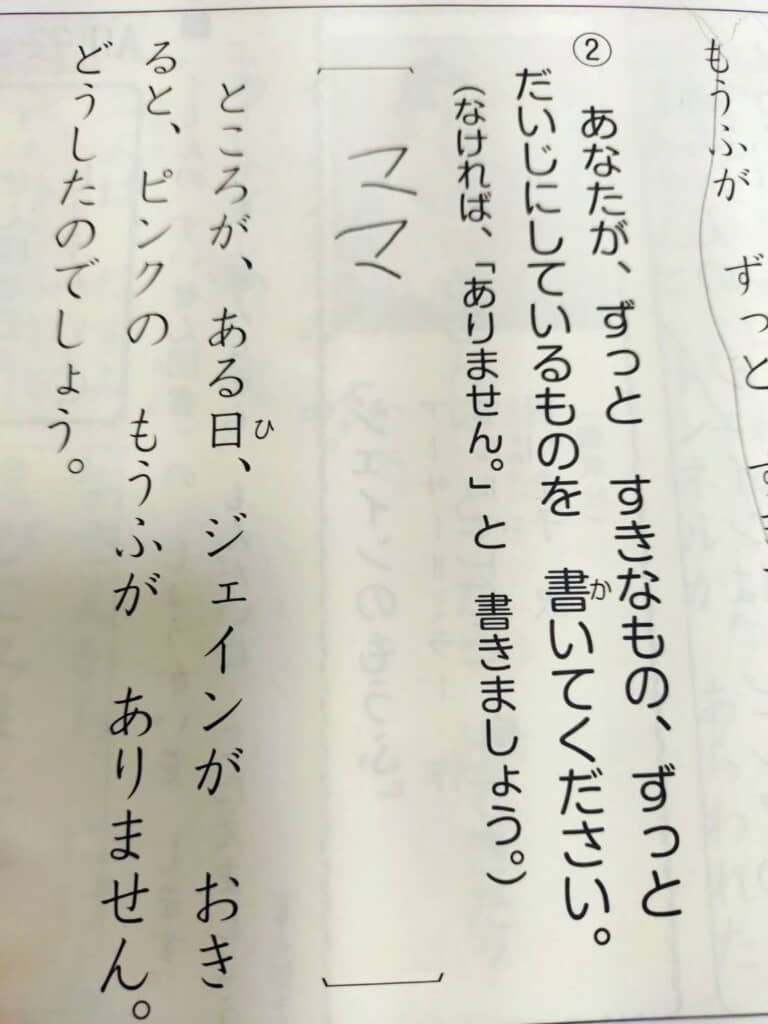 もうふが　ずっと
② あなたが、ずっと　すきなもの、ずっと
だいじにしているものを　書いてください。
(なければ、「ありません。」と　書きましょう。)
ママ
ところが、ある日、ジェインが　おき
ると、ピンクの　もうふが　ありません。
どうしたのでしょう。